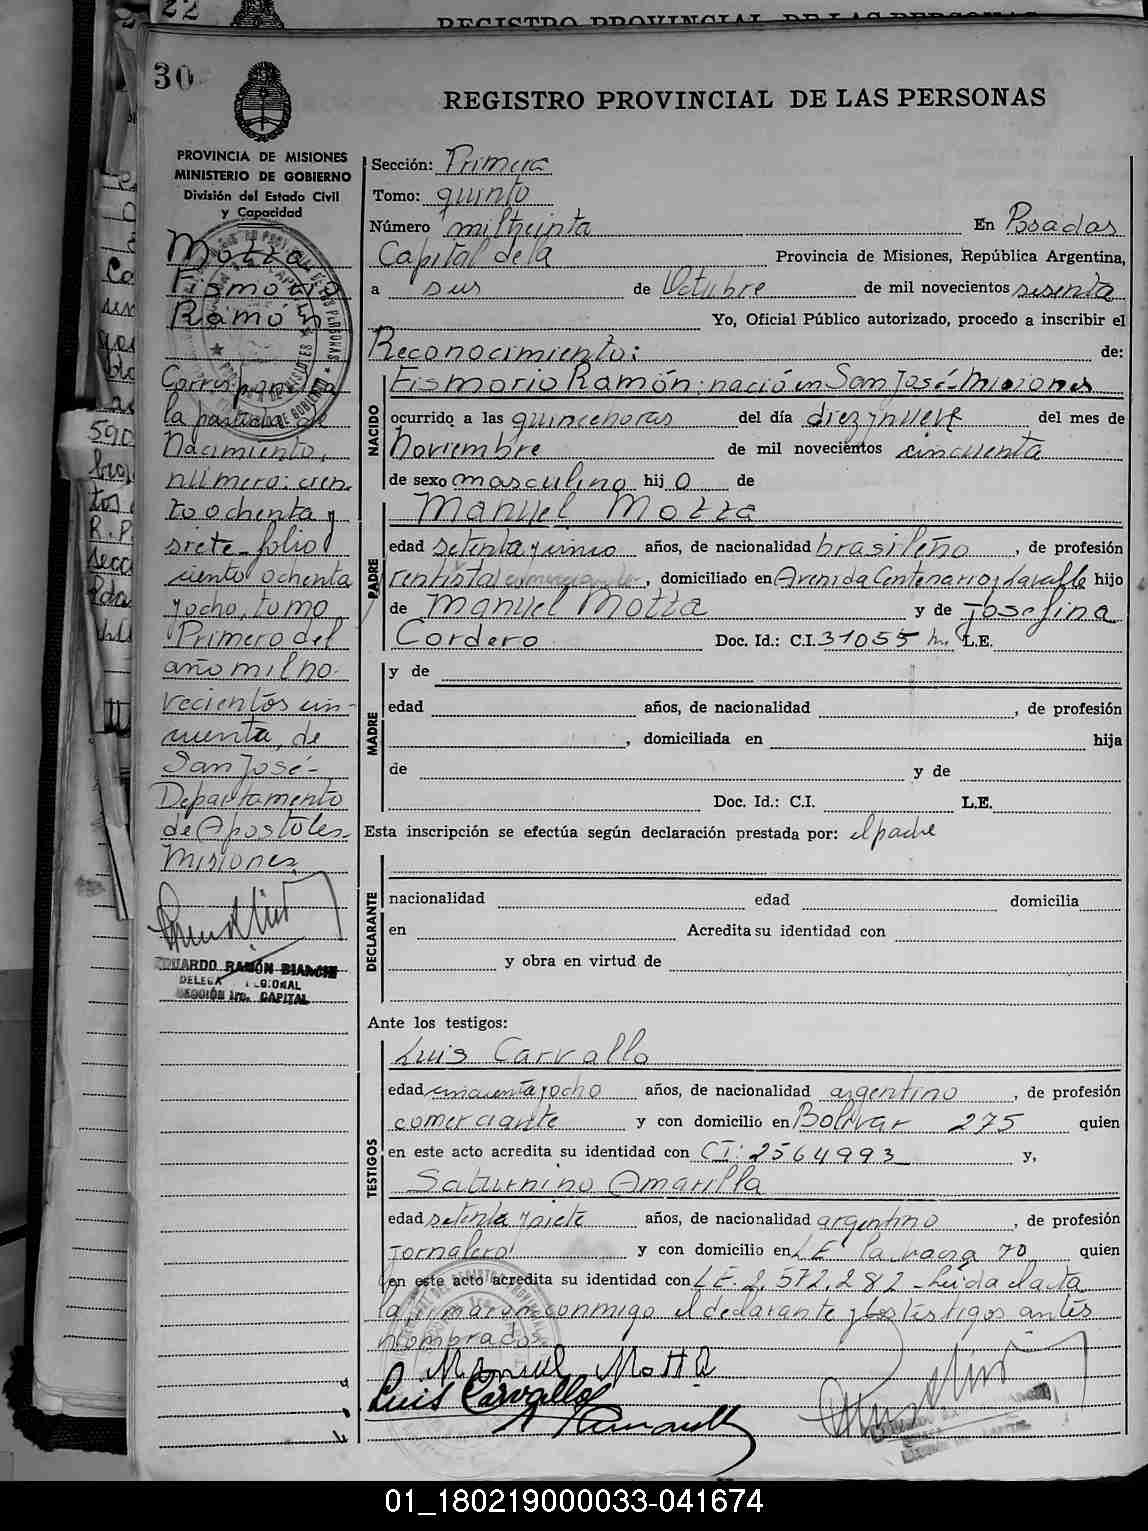 22
REGISTRO PROVINCIAL DE LAS PERSONAS
30
REGISTRO PROVINCIAL DE LAS PERSONAS
PROVINCIA DE MISIONES
MINISTERIO DE GOBIERNO
División del Estado Civil
y Capacidad
Motta
Fismorio
Ramón
Corresponde a
la partida de
Nacimiento,
número: cien-
to ochenta y
siete_folio
ciento ochenta
y ocho, tomo
Primero del
año mil no-
vecientos cin-
cuenta, de
San José-
Departamento
de Apostoles_
Misiones
EDUARDO RAMÓN BIANCHI
SECCIÓN 1ra. CAPITAL
Sección: Primera
Tomo: quinto
Número mil treinta En Posadas
Capital de la Provincia de Misiones, República Argentina,
a seis de Octubre de mil novecientos sesenta
Yo, Oficial Público autorizado, procedo a inscribir el
Reconocimiento: de:
NACIDO
Fismorio Ramón; nació en San José-Misiones
ocurrido a las quince horas del día diez y nueve del mes de
Noviembre de mil novecientos cincuenta
de sexo masculino hij o de
PADRE
Manuel Motta
edad setenta y cinco años, de nacionalidad brasileño, de profesión
rentista, domiciliado en Avenida Centenario y Lavalle hijo
de Manuel Motta y de Josefina
Cordero Doc. Id.: C.I. 31055 L.E.
MADRE
y de
edad años, de nacionalidad , de profesión
, domiciliada en hija
de y de
Doc. Id.: C.I. L.E.
Esta inscripción se efectúa según declaración prestada por: el padre
DECLARANTE
nacionalidad edad domicilia
en Acredita su identidad con
y obra en virtud de
Ante los testigos:
TESTIGOS
Luis Carvallo
edad cincuenta y ocho años, de nacionalidad argentino, de profesión
comerciante y con domicilio en Bolivar 275 quien
en este acto acredita su identidad con CI: 2564993 y,
Saturnino Amarilla
edad setenta y siete años, de nacionalidad argentino, de profesión
jornalero y con domicilio en quien
en este acto acredita su identidad con L E. 2.572.282_Leida el acta
la firmaron conmigo el declarante y los testigos antes
nombrados
Manuel Motta
Luis Carvallo
01_180219000033-041674